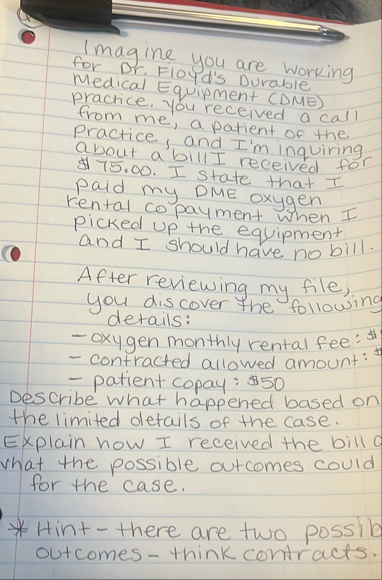 Imagine you are working
for Dr. Floyd's Durable
Medical Equipment (DME)
practice. You received a call
from me, a patient of the
practice, and I'm inquiring
about a bill I received for
$75.00. I state that I
paid my DME oxygen
rental copayment when I
picked up the equipment
and I should have no bill.
After reviewing my file,
you discover the following
details:
- oxygen monthly rental fee: $
- contracted allowed amount: $
- patient copay: $50
Describe what happened based on
the limited details of the case.
Explain how I received the bill
what the possible outcomes could
for the case.
* Hint - there are two possib
outcomes - think contracts.